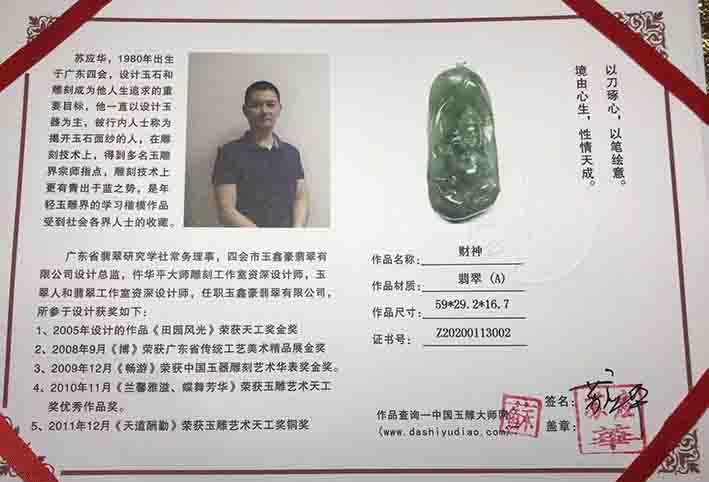 苏应华，1980年出生
于广东四会，设计玉石和
雕刻成为他人生追求的重
要目标，他一直以设计玉
器为主，被行内人士称为
揭开玉石面纱的人，在雕
刻技术上，得到多名玉雕
界宗师指点，雕刻技术上
更有青出于蓝之势，是年
轻玉雕界的学习楷模作品
受到社会各界人士的收藏。
广东省翡翠研究学社常务理事，四会市玉鑫豪翡翠有
限公司设计总监，仵华平大师雕刻工作室资深设计师，玉
翠人和翡翠工作室资深设计师，任职玉鑫豪翡翠有限公司，
所参于设计获奖如下：
1、2005年设计的作品《田园风光》荣获天工奖金奖
2、2008年9月《博》荣获广东省传统工艺美术精品展金奖
3、2009年12月《畅游》荣获中国玉器雕刻艺术华表奖金奖。
4、2010年11月《兰馨雅溢、蝶舞芳华》荣获玉雕艺术天工
奖优秀作品奖。
5、2011年12月《天道酬勤》荣获玉雕艺术天工奖铜奖
以刀琢心，以笔绘意。
境由心生，性情天成。
作品名称： 财神
作品材质： 翡翠（A）
作品尺寸： 59*29.2*16.7
证书号： Z20200113002
作品查询一中国玉雕大师网
(www.dashiyudiao.com)
蘇
签名：
盖章：